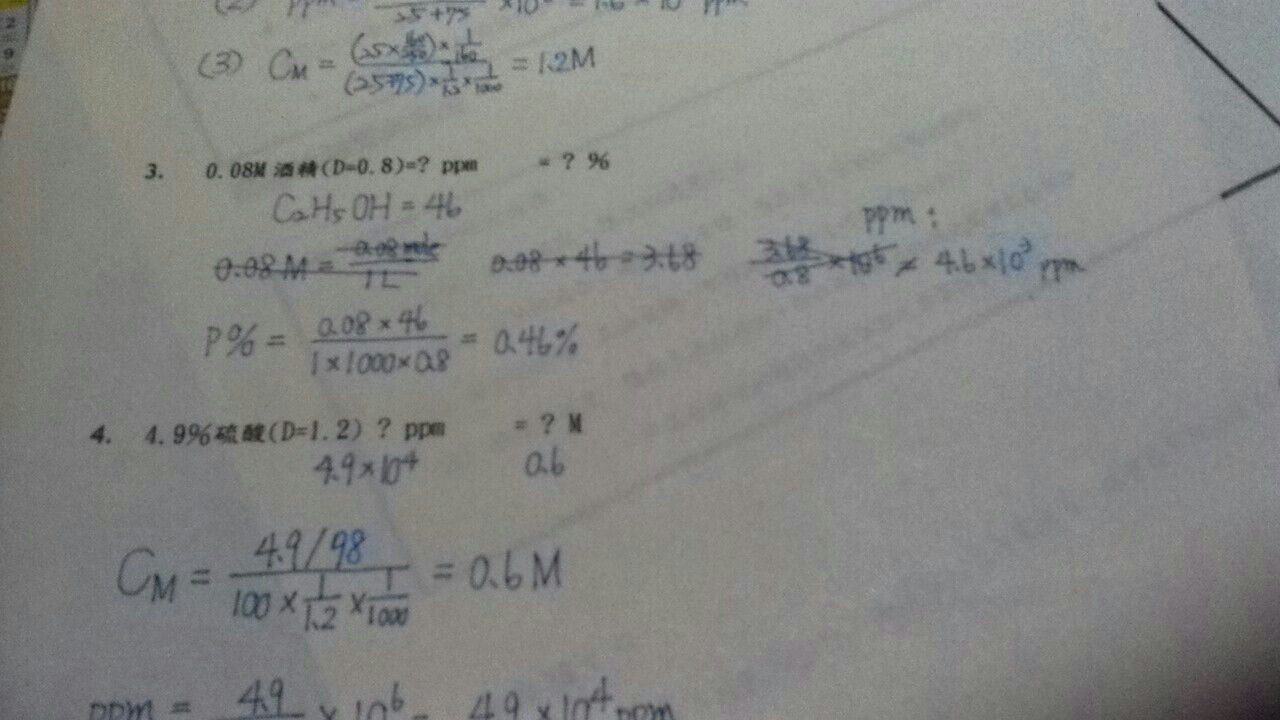 (2) ppm = /25+75 ×10 = 1.6×10 ppm
(3) CM = (25×160/250)×1/160 / (25+75)×1/1.2×1/1000 = 1.2M
3. 0.08M 酒精(D=0.8)=? ppm = ? %
C2H5OH = 46
ppm :
0.08M = 0.08mole/1L 0.08 × 46 = 3.68 3.68/0.8 ×10⁶ = 4.6×10³ ppm
P% = 0.08×46 / 1×1000×0.8 = 0.46%
4. 4.9%硫酸(D=1.2) ? ppm = ? M
4.9×10⁴ 0.6
CM = 4.9/98 / 100 × 1/1.2 × 1/1000 = 0.6M
ppm = 4.9 × 10⁶ = 4.9 ×10⁴ ppm